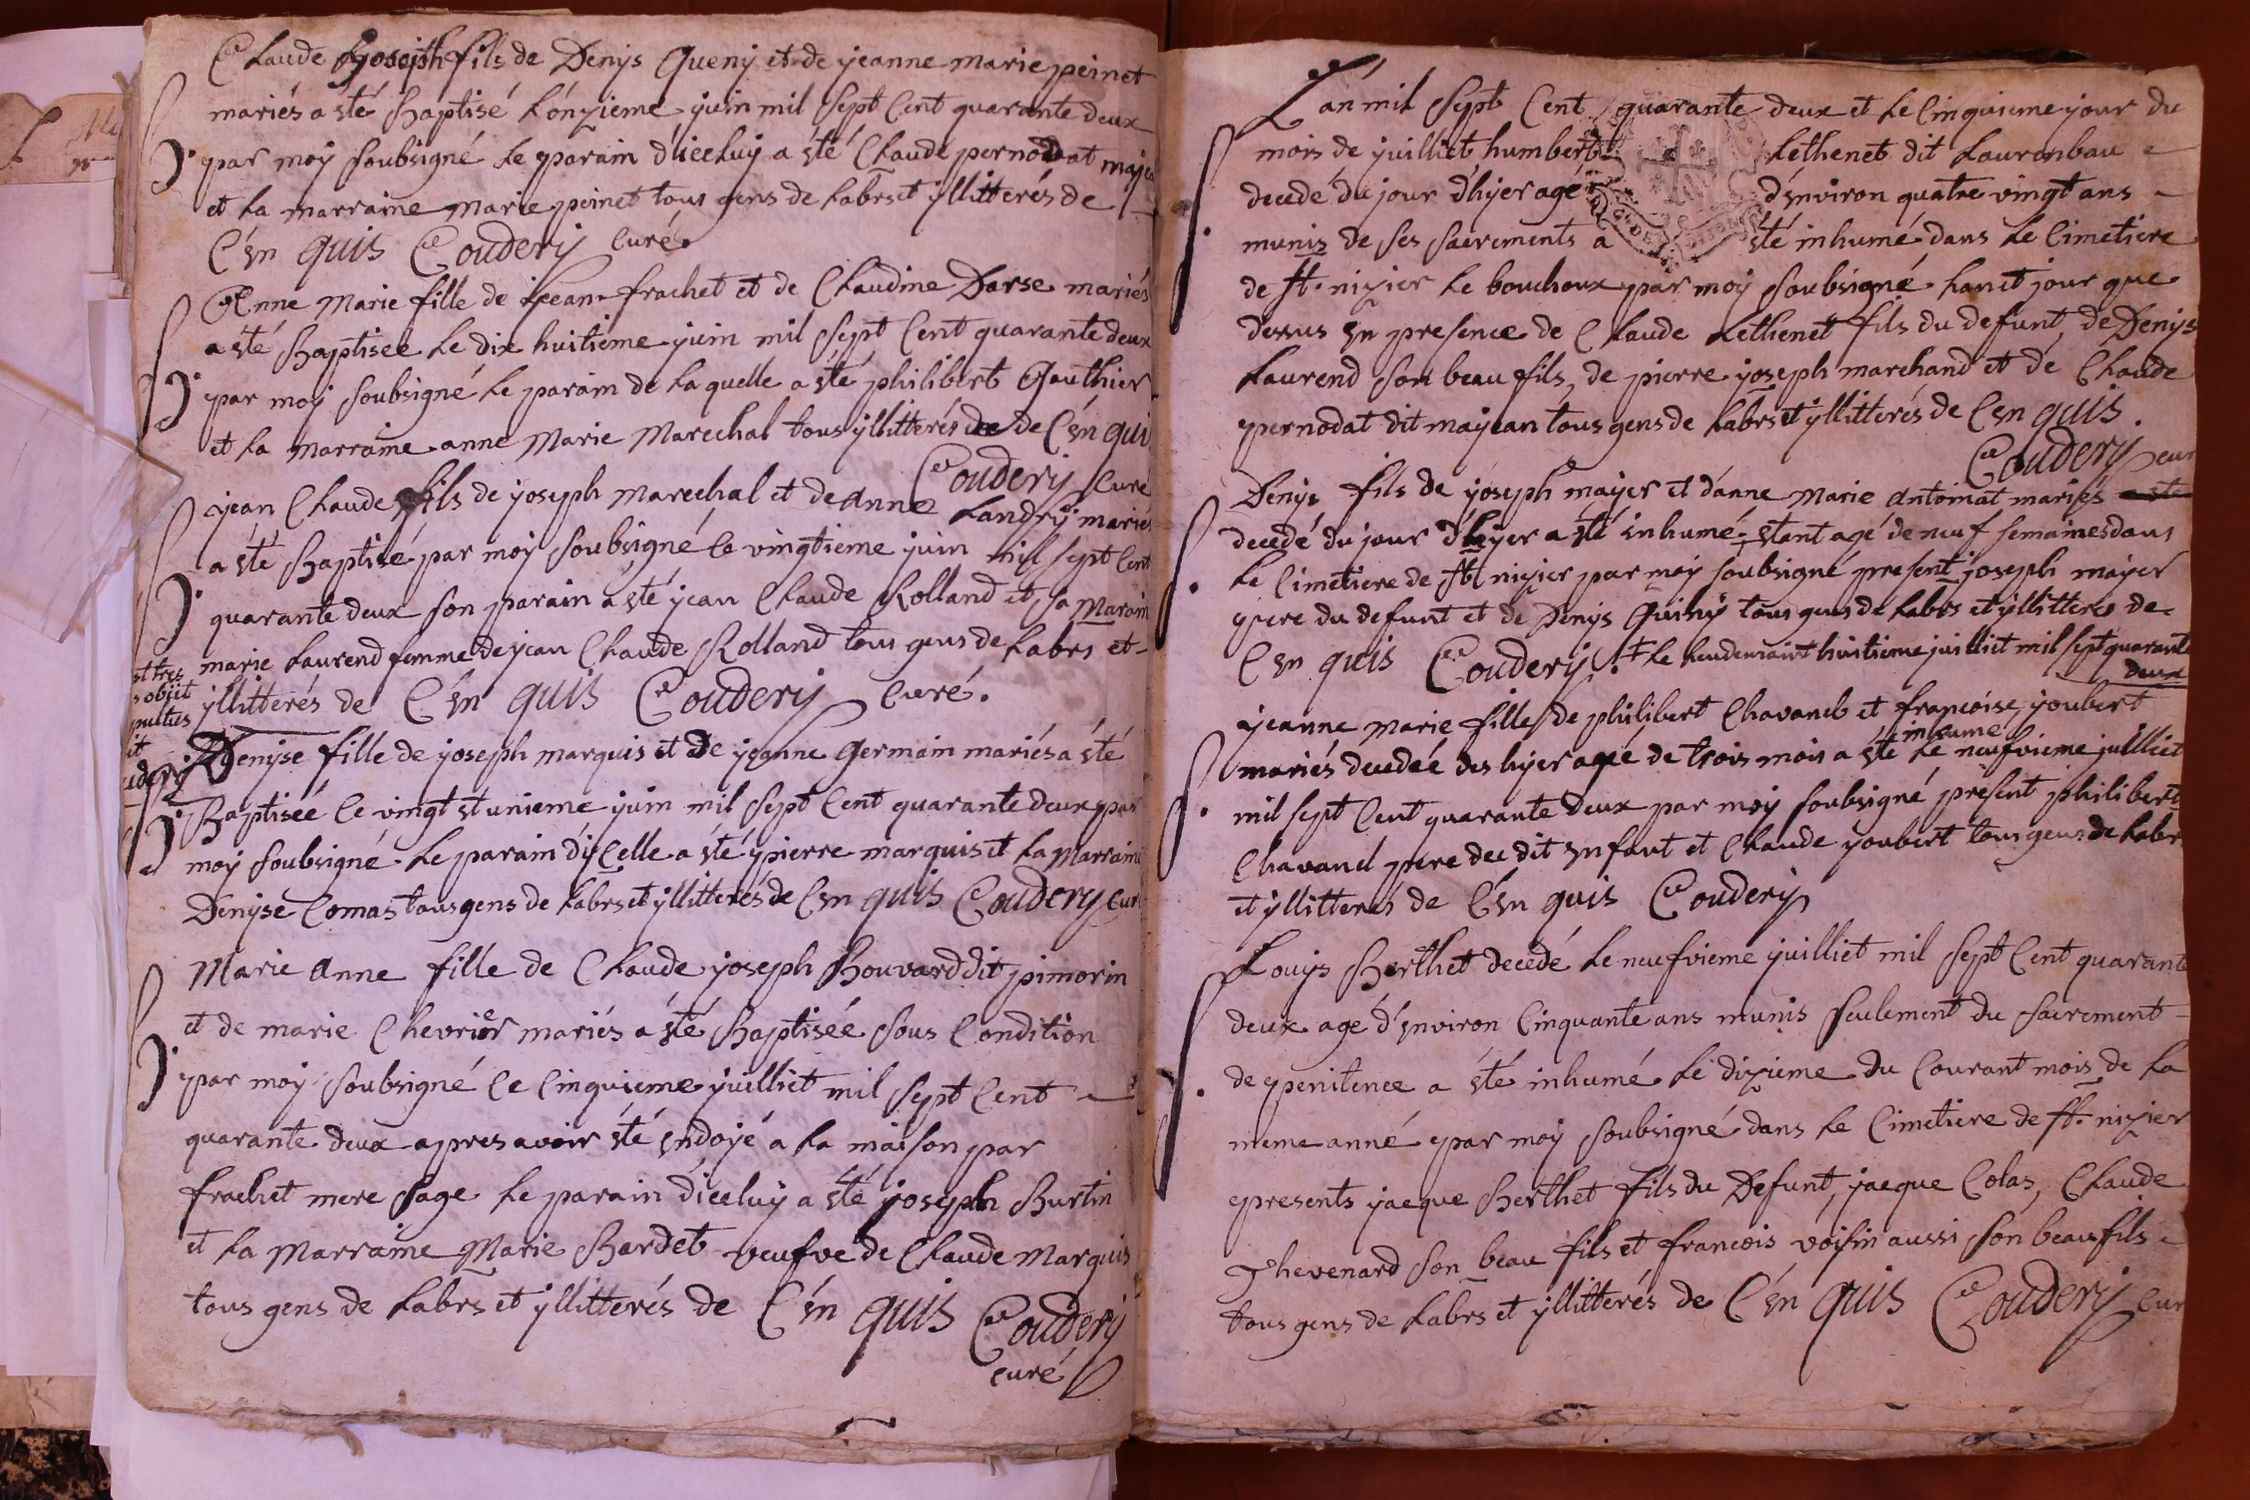 Claude yoseph fils de Denys Queny et de yeanne marie peinet
mariés a été baptisé l'onzieme juin mil sept cent quarante deux
par moy soubsigné le parain d'iceluy a été Claude pernodat
et la marraine marie peinet tous gens de labrs et yllitterés de
C'en quis Couderij curé.
Anne Marie fille de jean frachet et de Claudine Darse mariés
a été baptisée le dix huitieme juin mil sept cent quarante deux
par moy soubsigné le parain de la quelle a été philibert Gauthier
et la marraine anne Marie Marechal tous yllitterés de C'en qui
Couderij curé
yean Claude fils de yoseph marechal et de anne Landry mariés
a été baptisé par moy soubsigné le vingtieme juin mil sept cent
quarante deux son parain a été yean Claude Rolland et sa Marain
marie Laurend femme de yean Claude Rolland tous gens de labrs et
yllitterés de C'en quis Couderij curé.
Denyse fille de yoseph marquis et de yeanne germain mariés a été
Baptisée le vingt et unieme juin mil sept cent quarante deux par
moy soubsigné le parain d'ycelle a été pierre marquis et la Marraine
Denyse Comas tous gens de labrs et yllitterés de C'en quis Couderij cur
Marie anne fille de Claude yoseph Bouvard dit pimorin
et de marie Chevrier mariés a été baptisée sous Condition
par moy soubsigné le cinquieme juilliet mil sept cent
quarante deux apres avoir été endoyé a la maison par
frachet mere sage le parain d'iceluy a été yoseph Burtin
et la Marraine Marie Bardet veufve de Claude Marquis
tous gens de labrs et yllitterés de C'en quis Couderij
curé
L'an mil sept cent quarante deux et le cinquieme jour du
mois de juilliet humbert Lethenet dit Lauronbau
decedé du jour d'hyer agé d'environ quatre vingt ans
munis de ses sacrements a été inhumé dans le cimetiere
de st. nizier le bouchoux par moy soubsigné l'an et jour que
dessus en presence de Claude Lethenet fils du defunt, de Denys
Laurend son beau fils, de pierre yoseph marchand et de Claude
pernodat dit mayean tous gens de labrs et yllitterés de C'en quis.
Couderij cur
Denys fils de yoseph mayer et d'anne Marie Antoinat mariés
decedé du jour d'hyer a été inhumé + étant agé de neuf semaines dans
le Cimetiere de st nizier par moy soubsigné present joseph mayer
pere du defunt et de Denys Quiny tous gens de labrs et yllitterés de
C'en quis Couderij. + le lendemaint huitieme juilliet mil sept quarante
deux
yeanne marie fille de philibert Chavand et françoise youbert
inhumé
mariés decedée des hyer agé de trois mois a été le neufvieme juilliet
mil sept cent quarante deux par moy soubsigné present philibert
Chavand pere de dit enfant et Claude youbert tous gens de labr
et yllitterés de C'en quis Couderij
Louys Berthet decedé le neufvieme juilliet mil sept cent quarante
deux agé d'environ cinquante ans munis seulement du sacrement
de penitence a été inhumé le dizieme du Courant mois de la
meme anné par moy soubsigné dans le Cimetiere de st. nizier
presents yacque Berthet fils du Defunt, yacque Colas, Claude
Thevenard son beau fils et francois voisin aussi son beau fils
tous gens de labrs et yllitterés de C'en quis Couderij cur